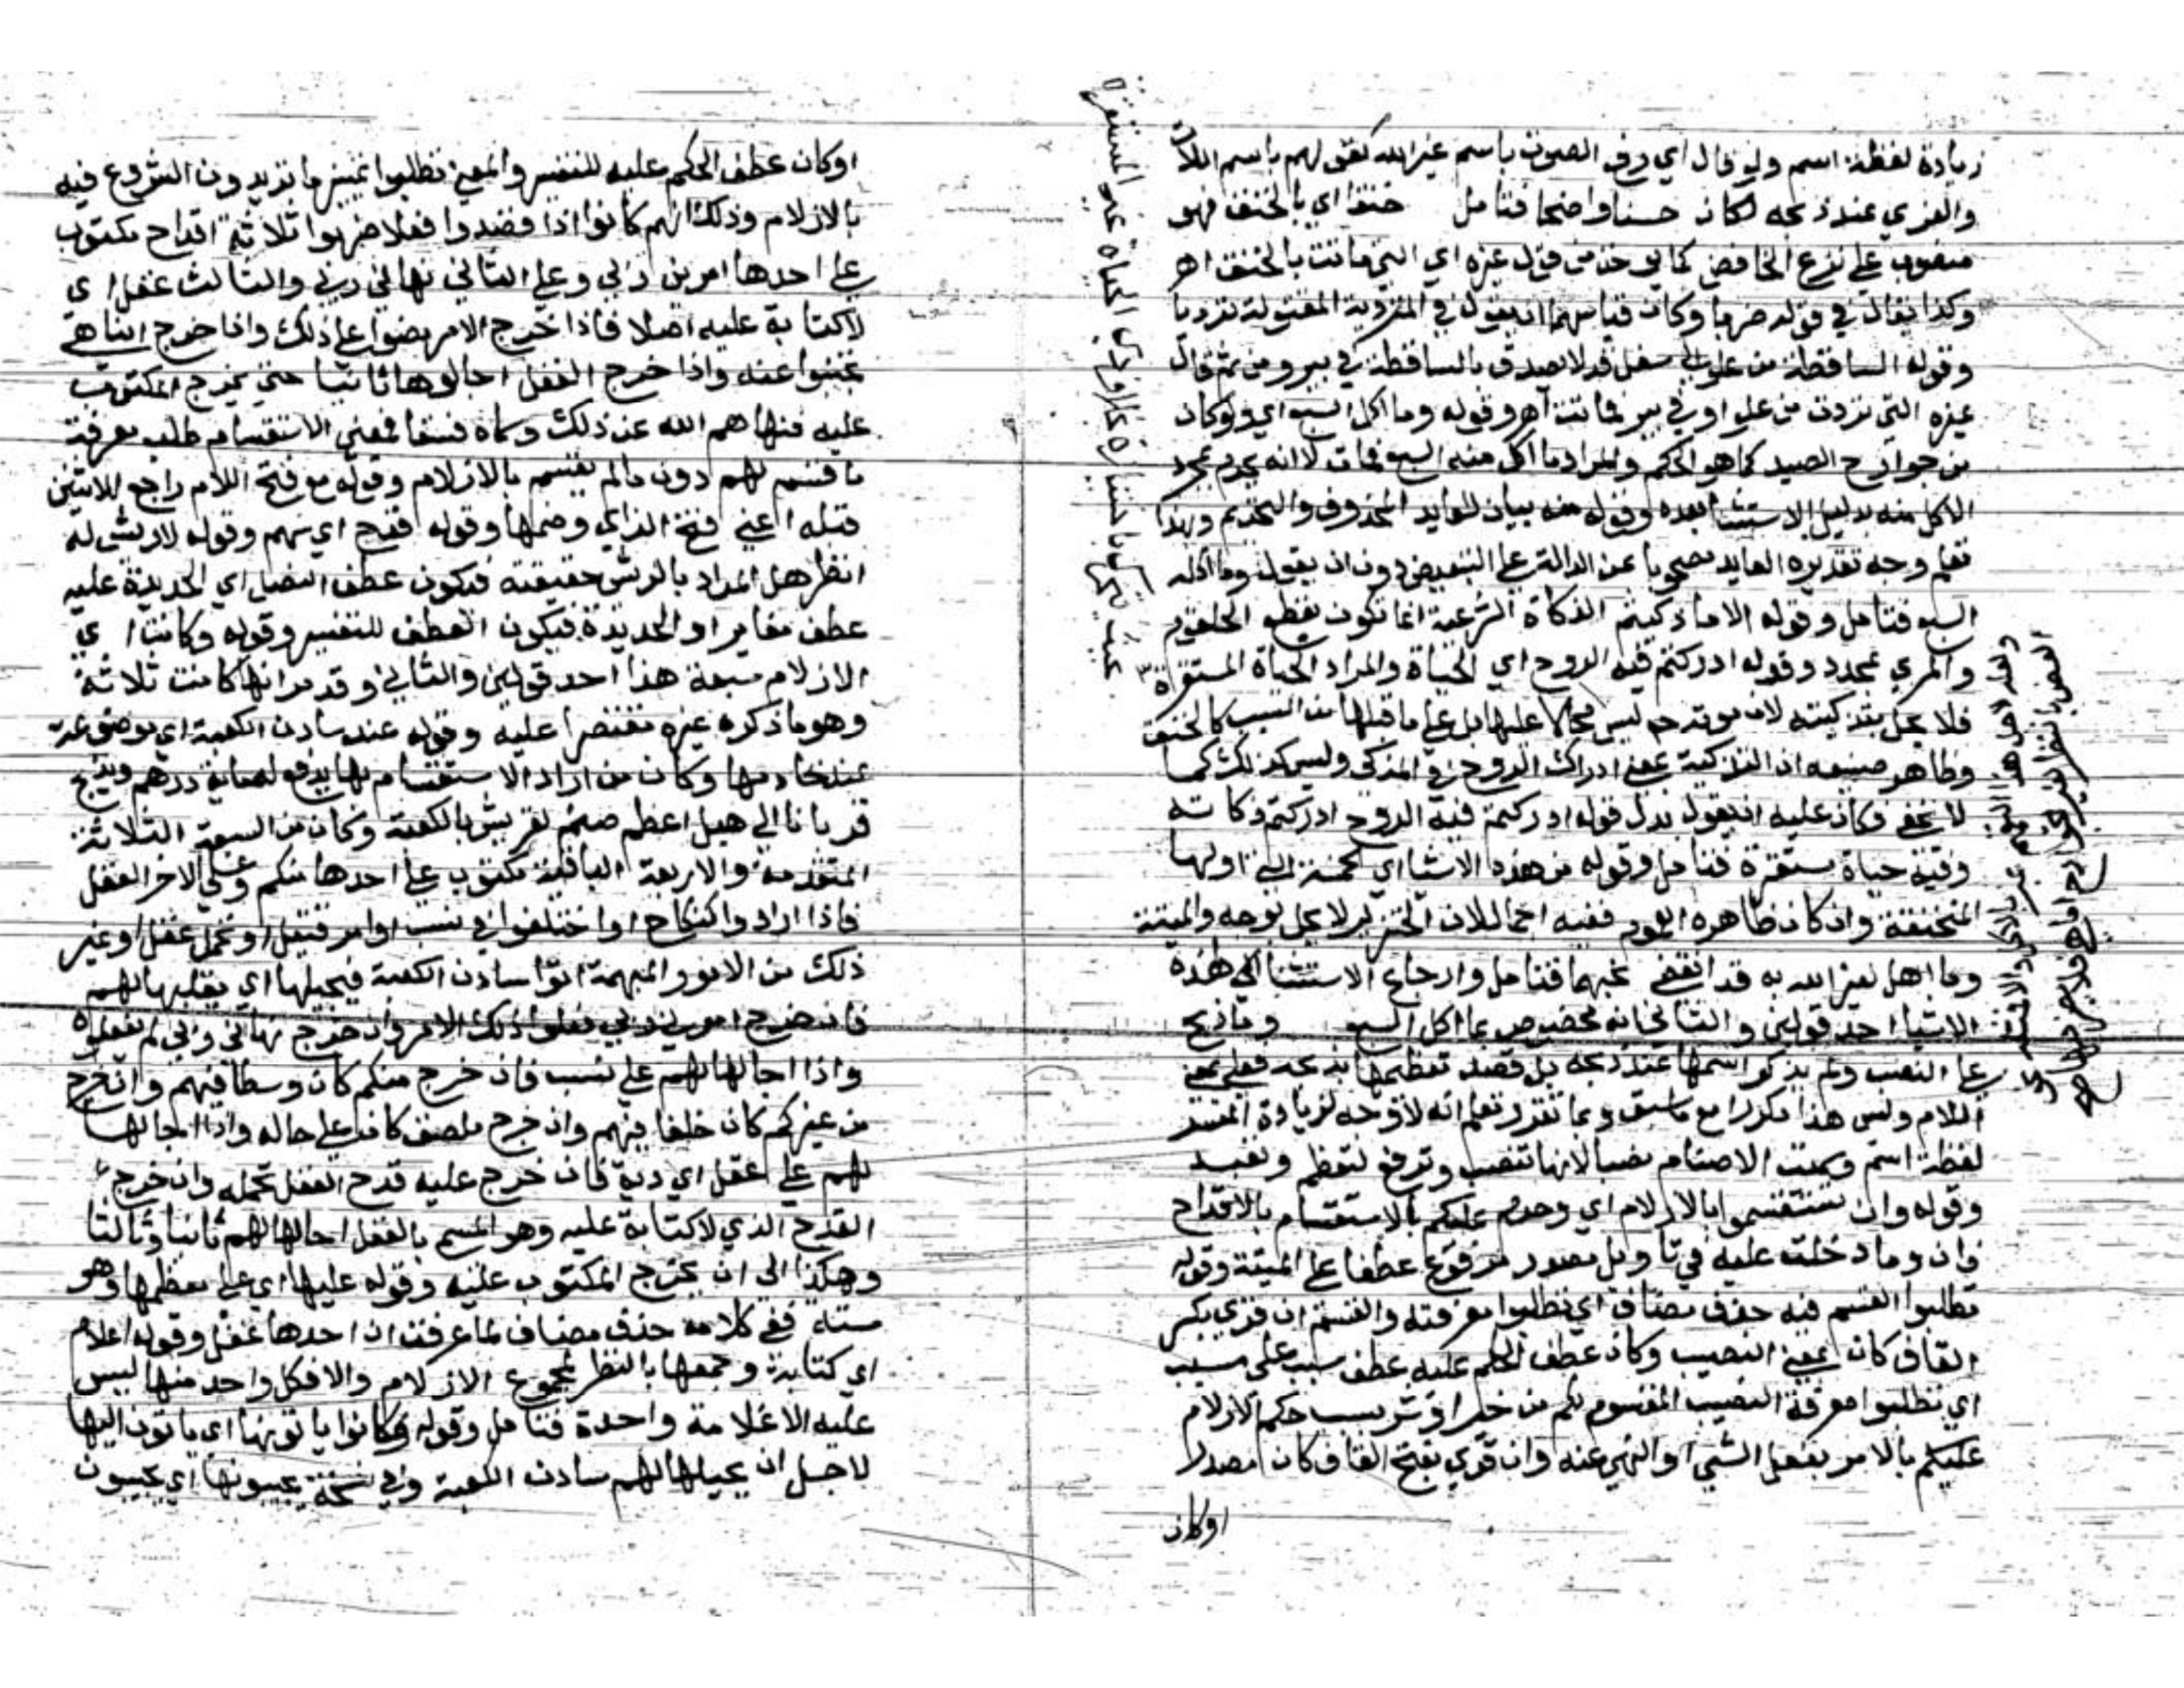 زيادة لفظة اسم ولو قال اي رفع الصوت باسم غير الله كقولهم باسم اللات
والعزي عند ذبحه لكان حسنا واضحا فتامل خنقا اي بالخنق فهو
منصوب علي نزع الخافض كما يوخذ من قول غيره اي التي ماتت بالخنق اهـ
وكذا يقال في قوله ضربا وكان قياسهما ان يقول في المتردية المقتولة ترديا
وقوله الساقطة من علو الي سفل قد لا يصدق بالساقطة في بير ومن ثم قال
غيره التي تردت من علو او في بير فماتت اهـ وقوله وما اكل السبع اي ولو كان
من جوارح الصيد كما هو الحكم والمراد ما اكل منه السبع فمات لا انه يحرم بمجرد
الاكل منه بدليل الاستثنا بعده وقوله منه بيان للعايد المحذوف والتحذيم وبهذا
تعلم وجه تقديره العايد مصحوبا بمن الدالة علي التبعيض دون ان يقول وما اكله
السبع فتامل وقوله الا ما ذكيتم الذكاة الشرعية انما تكون بقطع الحلقوم
والمري بمحدد وقوله ادركتم فيه الروح اي الحياة والمراد الحياة المستقرة
فلا يحل بتذكيته لان موته ح ليس محالا عليها بل علي ما قبلها من السبب كالخنق
وظاهر صنيعه ان التذكية بمعني ادراك الروح في المذكي وليس كذلك كما
لا يخفي فكان عليه ان يقول بدل قوله ادركتم فيه الروح ادركتم ذكاته
وفيه حياة مستقرة فتامل وقوله من هذه الاشيا اي الخمسة التي اولها
المنخنقة وان كان ظاهره العود ففيه اجمال لان الخنزير لا يحل بوجه والميتة
وما اهل لغير الله به قد انقضي نحبهما فتامل وارجاع الاستثنا الي هذه
الاشيا احد قولين والثاني انه مخصوص بما اكل السبع وما ذبح
علي النصب ولم يذكر اسمها عند ذبحه بل قصد تعظيمها بذبحه فعلي بمعني
اللام وليس هذا مكررا مع ما سبق وبما تقرر تعلم انه لا وجه لزيادة المفسر
لفظة اسم وسميت الاصنام نصبا لانها تنصب وترفع لتعظم وتعبد
وقوله وان تستقسموا بالازلام اي وحرم عليكم بالاستقسام بالاقداح
فان وما دخلت عليه في تاويل مصدر مرفوع عطفا علي الميتة وقوله
تطلبوا القسم فيه حذف مضاف اي تطلبوا معرفته والقسم ان قري بكسر
القاف كان بمعني النصيب وكان عطف الحكم عليه عطف سبب علي مسبب
اي تطلبوا معرفة النصيب المقسوم لكم من خير او شر بسبب حكم الازلام
عليكم بالامر بفعل الشي او النهي عنه وان قري بفتح القاف كان مصدرا
اوكان
اوكان عطف الحكم عليه للتفسير والمعني تطلبوا تمييز ما تريدون الشروع فيه
بالازلام وذلك انهم كانوا اذا قصدوا فعلا ضربوا ثلاثة اقداح مكتوب
علي احدها امرني ربي وعلي الثاني نهاني ربي والثالث غفل اي
لا كتابة عليه اصلا فاذا خرج الامر مضوا علي ذلك واذا خرج الناهي
تجنبوا عنه واذا خرج الغفل اجالوها ثانيا حتي يخرج المكتوب
عليه فنهاهم الله عن ذلك وسماه فسقا فمعني الاستقسام طلب معرفة
ما قسم لهم دون ما لم يقسم بالازلام وقوله مع فتح اللام راجع للاثنين
قبله اعني فتح الزاي وضمها وقوله قدح اي سهم وقوله لا ريش له
انظر هل المراد بالريش حقيقته فيكون عطف النصل اي الحديدة عليه
عطف مغاير او الحديدة فيكون العطف للتفسير وقوله وكانت اي
الازلام سبعة هذا احد قولين والثاني وقد مر انها كانت ثلاثة
وهو ما ذكره غيره مقتصرا عليه وقوله عند سادن الكعبة اي موضوعة
عند خادمها وكان من اراد الاستقسام بها يدفع له مائة درهم ويذبح
قربانا الي هبل اعظم صنم لقريش بالكعبة وكان من السبعة الثلاثة
المتقدمة والاربعة الباقية مكتوب علي احدها منكم وعلي الاخر العقل
فاذا ارادوا نكاحا او اختلفوا في نسب او امر قتيل او تحمل عقل او غير
ذلك من الامور المبهمة اتوا سادن الكعبة فيجيلها اي يقلبها لهم
فان خرج امرني ربي فعلوا ذلك الامر وان خرج نهاني ربي لم يفعلوه
واذا اجالها لهم علي نسب فان خرج منكم كان وسطا فيهم وان خرج
من غيركم كان حلفا فيهم وان خرج ملصق كان علي حاله واذا اجالها
لهم علي عقل اي دية فان خرج عليه قدح العقل تحمله وان خرج
القدح الذي لا كتابة عليه وهو المسمي بالغفل اجالها لهم ثانيا وثالثا
وهكذا الي ان يخرج المكتوب عليه وقوله عليها اي علي معظمها وهو
ستة ففي كلامه حذف مضاف لما عرفت ان احدها غفل وقوله اعلام
اي كتابة وجمعها بالنظر لمجموع الازلام والا فكل واحد منها ليس
عليه الا علامة واحدة فتامل وقوله وكانوا ياتونها اي ياتون اليها
لاجل ان يجيلها لهم سادن الكعبة وفي نسخة يجيبونها اي يجيبون